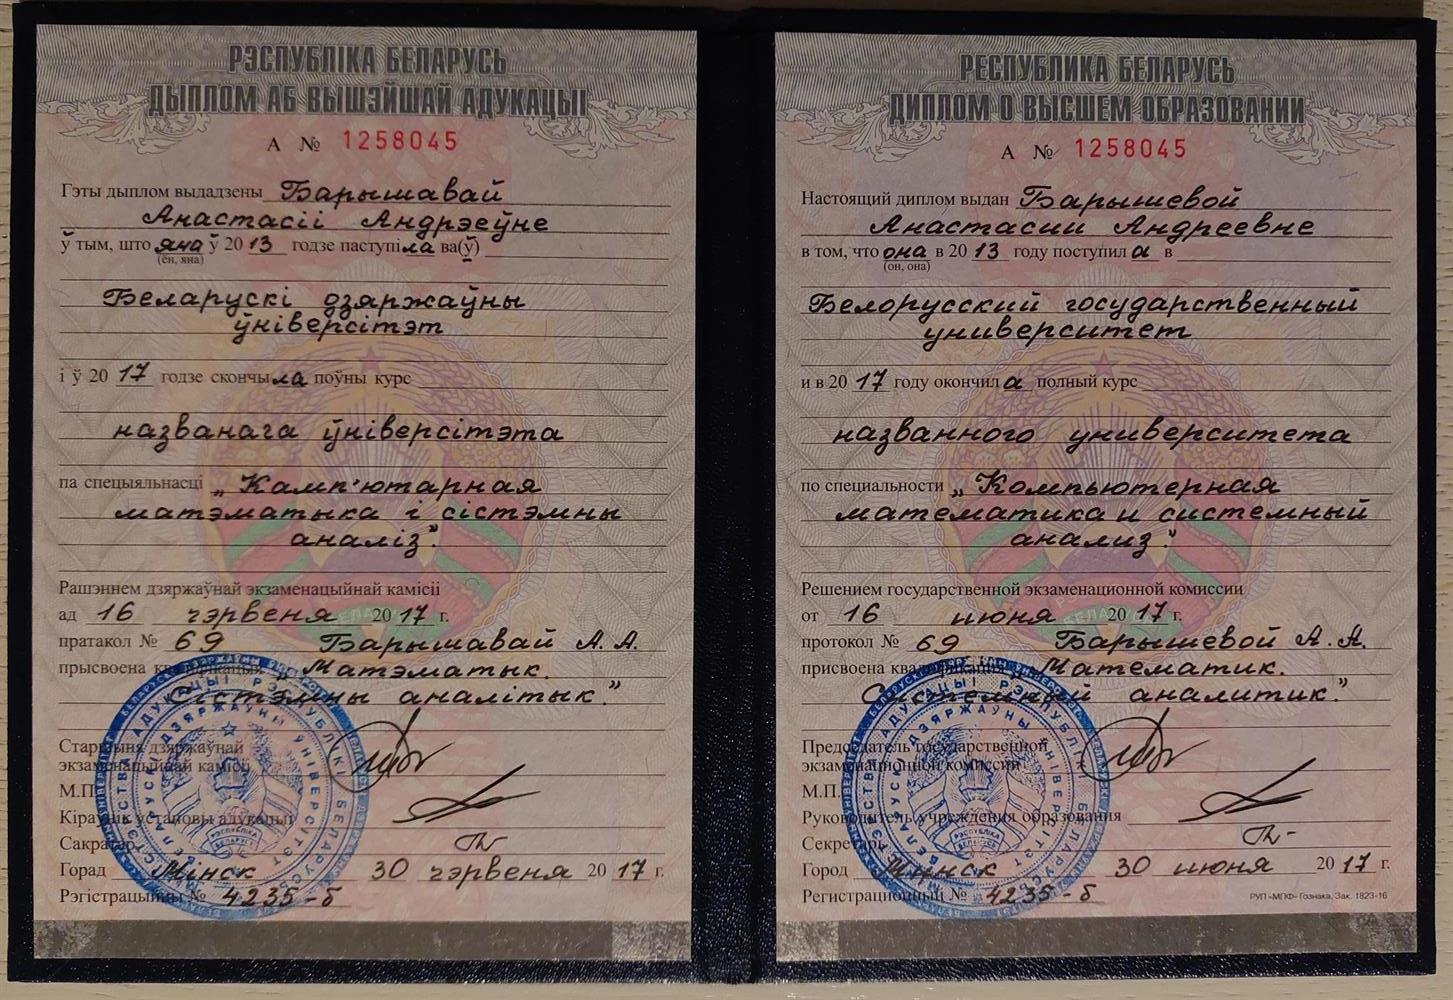 РЭСПУБЛІКА БЕЛАРУСЬ
ДЫПЛОМ АБ ВЫШЭЙШАЙ АДУКАЦЫІ
А № 1258045
Гэты дыплом выдадзены Барышавай
Анастасіі Андрэеўне
ў тым, што яна ў 2013 годзе паступіла ва(ў)
(ён, яна)
Беларускі дзяржаўны
ўніверсітэт
і ў 2017 годзе скончыла поўны курс
названага ўніверсітэта
па спецыяльнасці „Камп'ютарная
матэматыка і сістэмны
аналіз".
Рашэннем дзяржаўнай экзаменацыйнай камісіі
ад 16 чэрвеня 2017 г.
пратакол № 69 Барышавай А. А.
прысвоена кваліфікацыя „Матэматык.
Сістэмны аналітык."
Старшыня дзяржаўнай
экзаменацыйнай камісіі
М.П.
Кіраўнік установы адукацыі
Сакратар
Горад Мінск 30 чэрвеня 2017 г.
Рэгістрацыйны № 4235-б
РЕСПУБЛИКА БЕЛАРУСЬ
ДИПЛОМ О ВЫСШЕМ ОБРАЗОВАНИИ
А № 1258045
Настоящий диплом выдан Барышевой
Анастасии Андреевне
в том, что она в 2013 году поступила в
(он, она)
Белорусский государственный
университет
и в 2017 году окончила полный курс
названного университета
по специальности „Компьютерная
математика и системный
анализ".
Решением государственной экзаменационной комиссии
от 16 июня 2017 г.
протокол № 69 Барышевой А. А.
присвоена квалификация „Математик.
Системный аналитик."
Председатель государственной
экзаменационной комиссии
М.П.
Руководитель учреждения образования
Секретарь
Город Минск 30 июня 2017 г.
Регистрационный № 4235-б
РУП «МПФ» Гознака. Зак. 1823-16